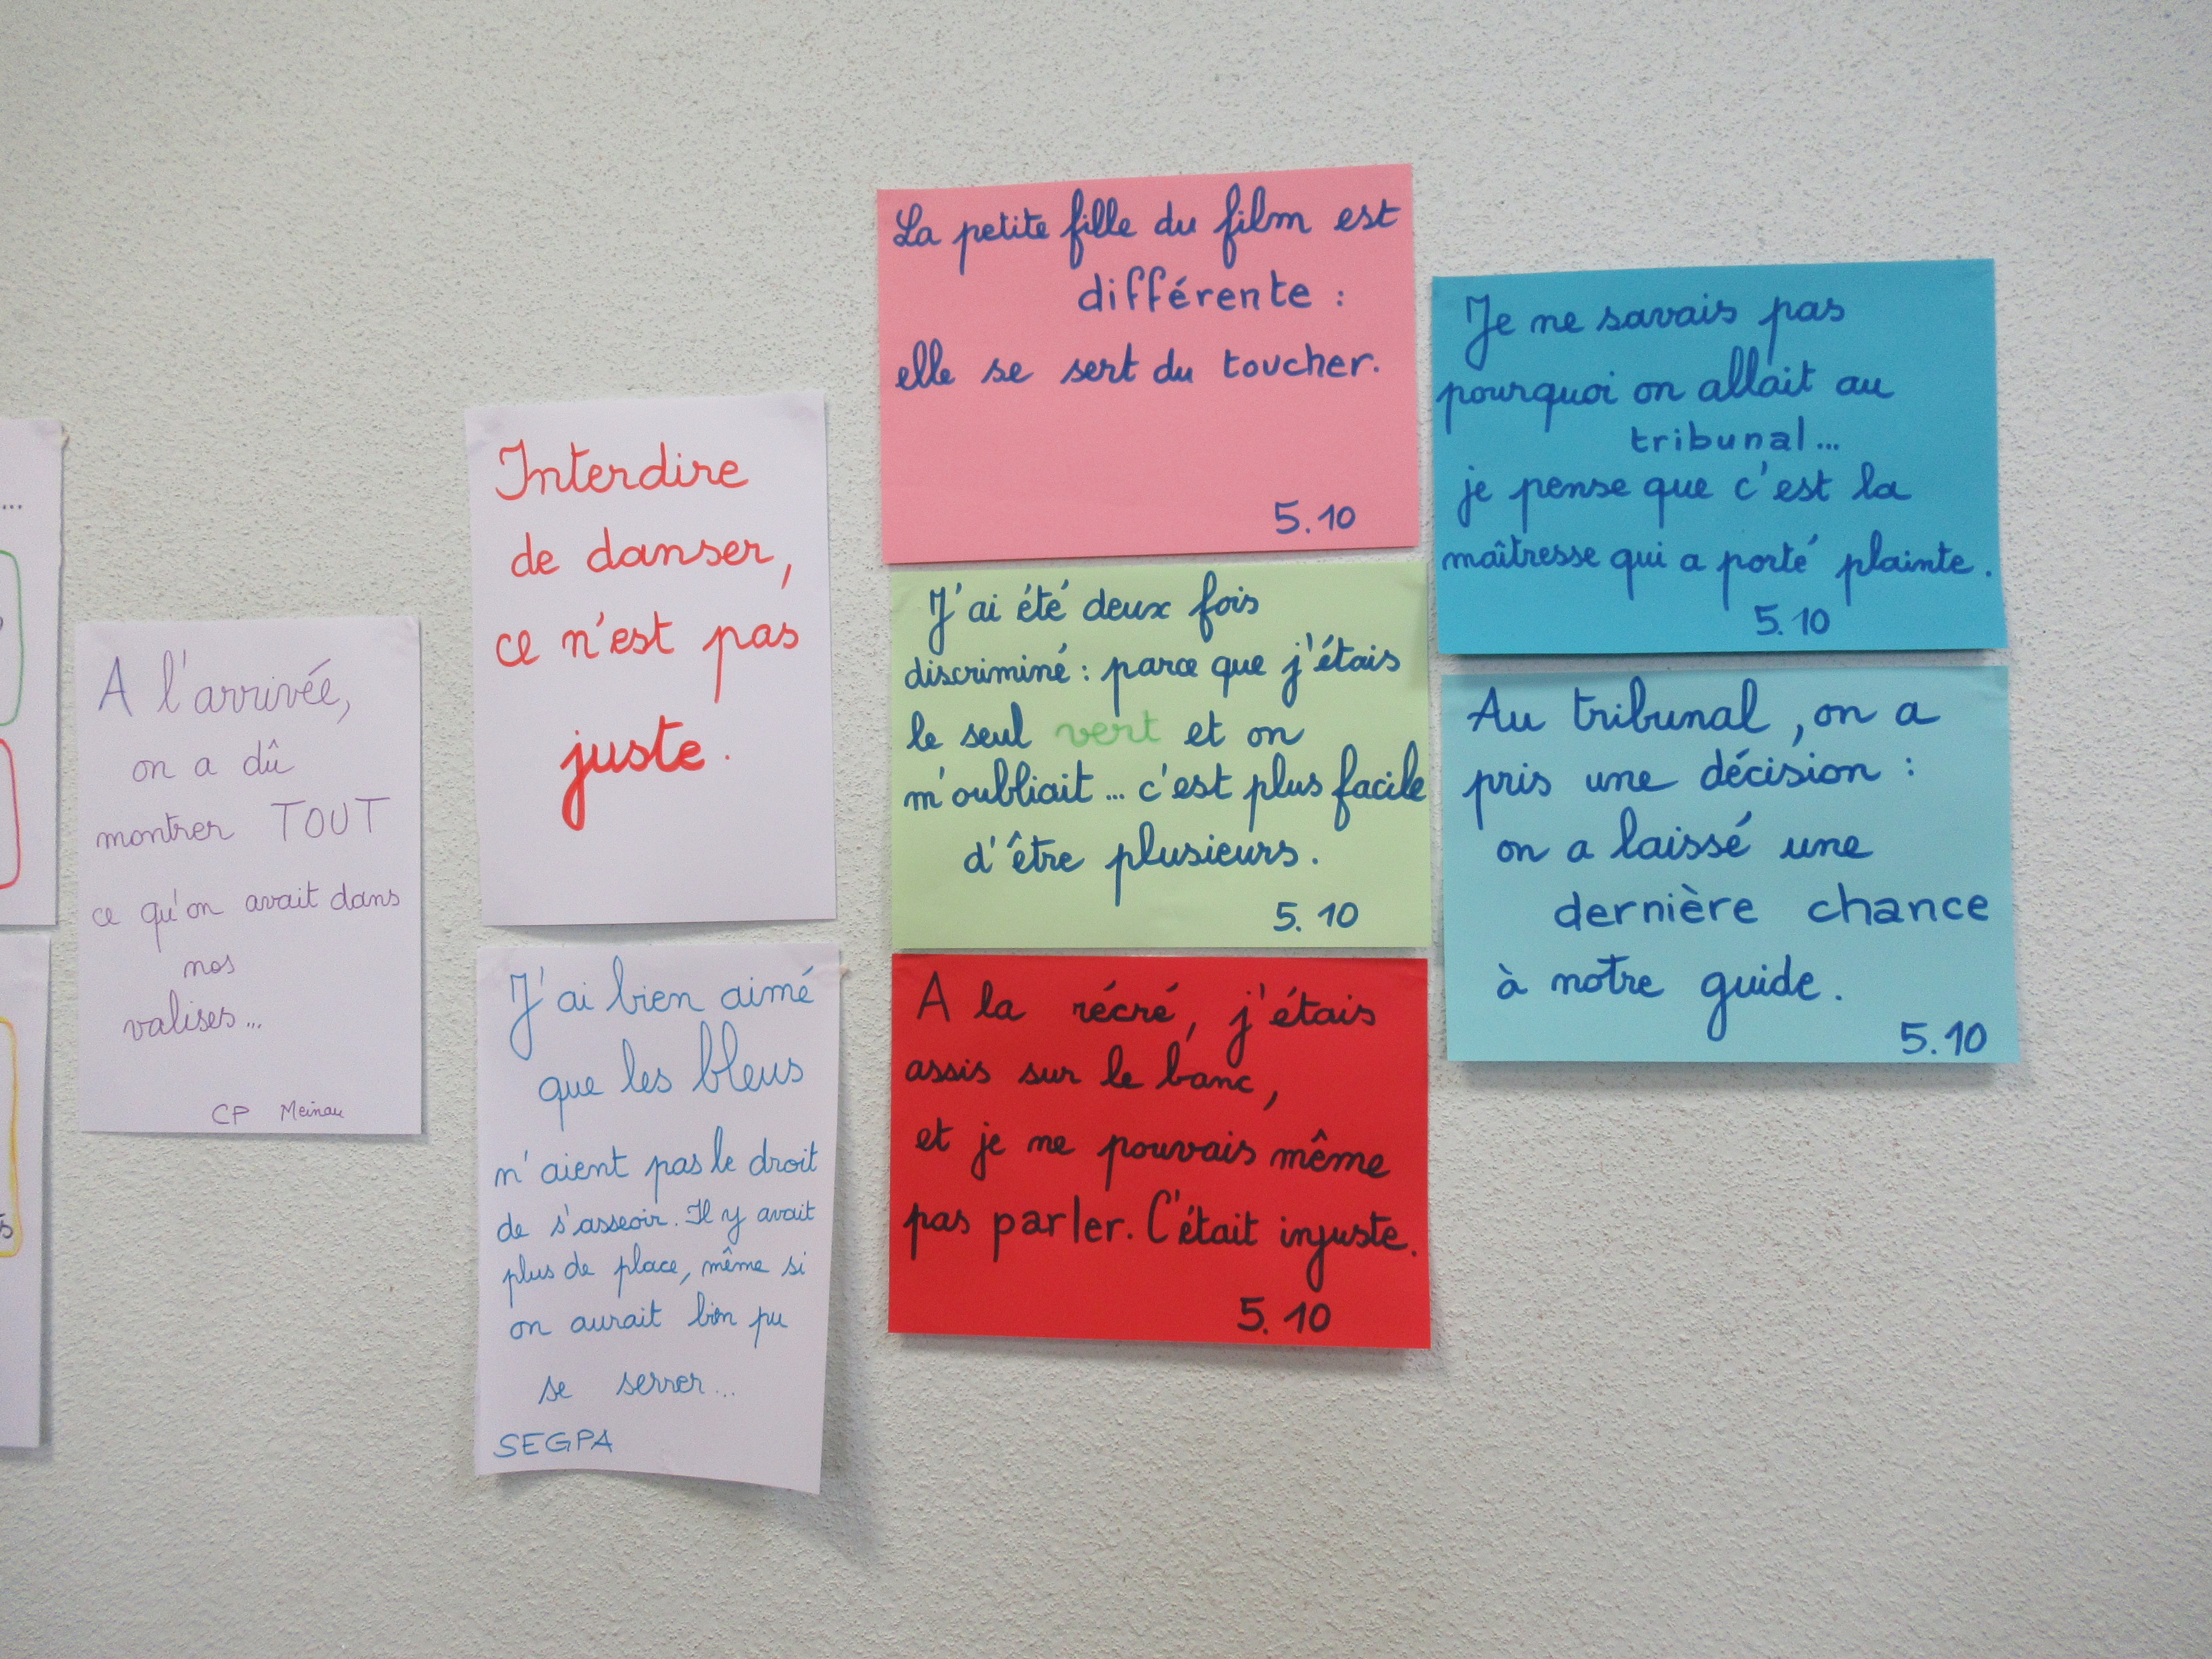 A l'arrivée,
on a dû
montrer TOUT
ce qu'on avait dans
nos
valises...
CP Meinau
Interdire
de danser,
ce n'est pas
juste.
J'ai bien aimé
que les bleus
n'aient pas le droit
de s'asseoir. Il y avait
plus de place, même si
on aurait bien pu
se serrer...
SEGPA
La petite fille du film est
différente :
elle se sert du toucher.
5.10
J'ai été deux fois
discriminé : parce que j'étais
le seul vert et on
m'oubliait... c'est plus facile
d'être plusieurs.
5.10
A la récré, j'étais
assis sur le banc,
et je ne pouvais même
pas parler. C'était injuste.
5.10
Je ne savais pas
pourquoi on allait au
tribunal...
je pense que c'est la
maîtresse qui a porté plainte.
5.10
Au tribunal, on a
pris une décision :
on a laissé une
dernière chance
à notre guide.
5.10